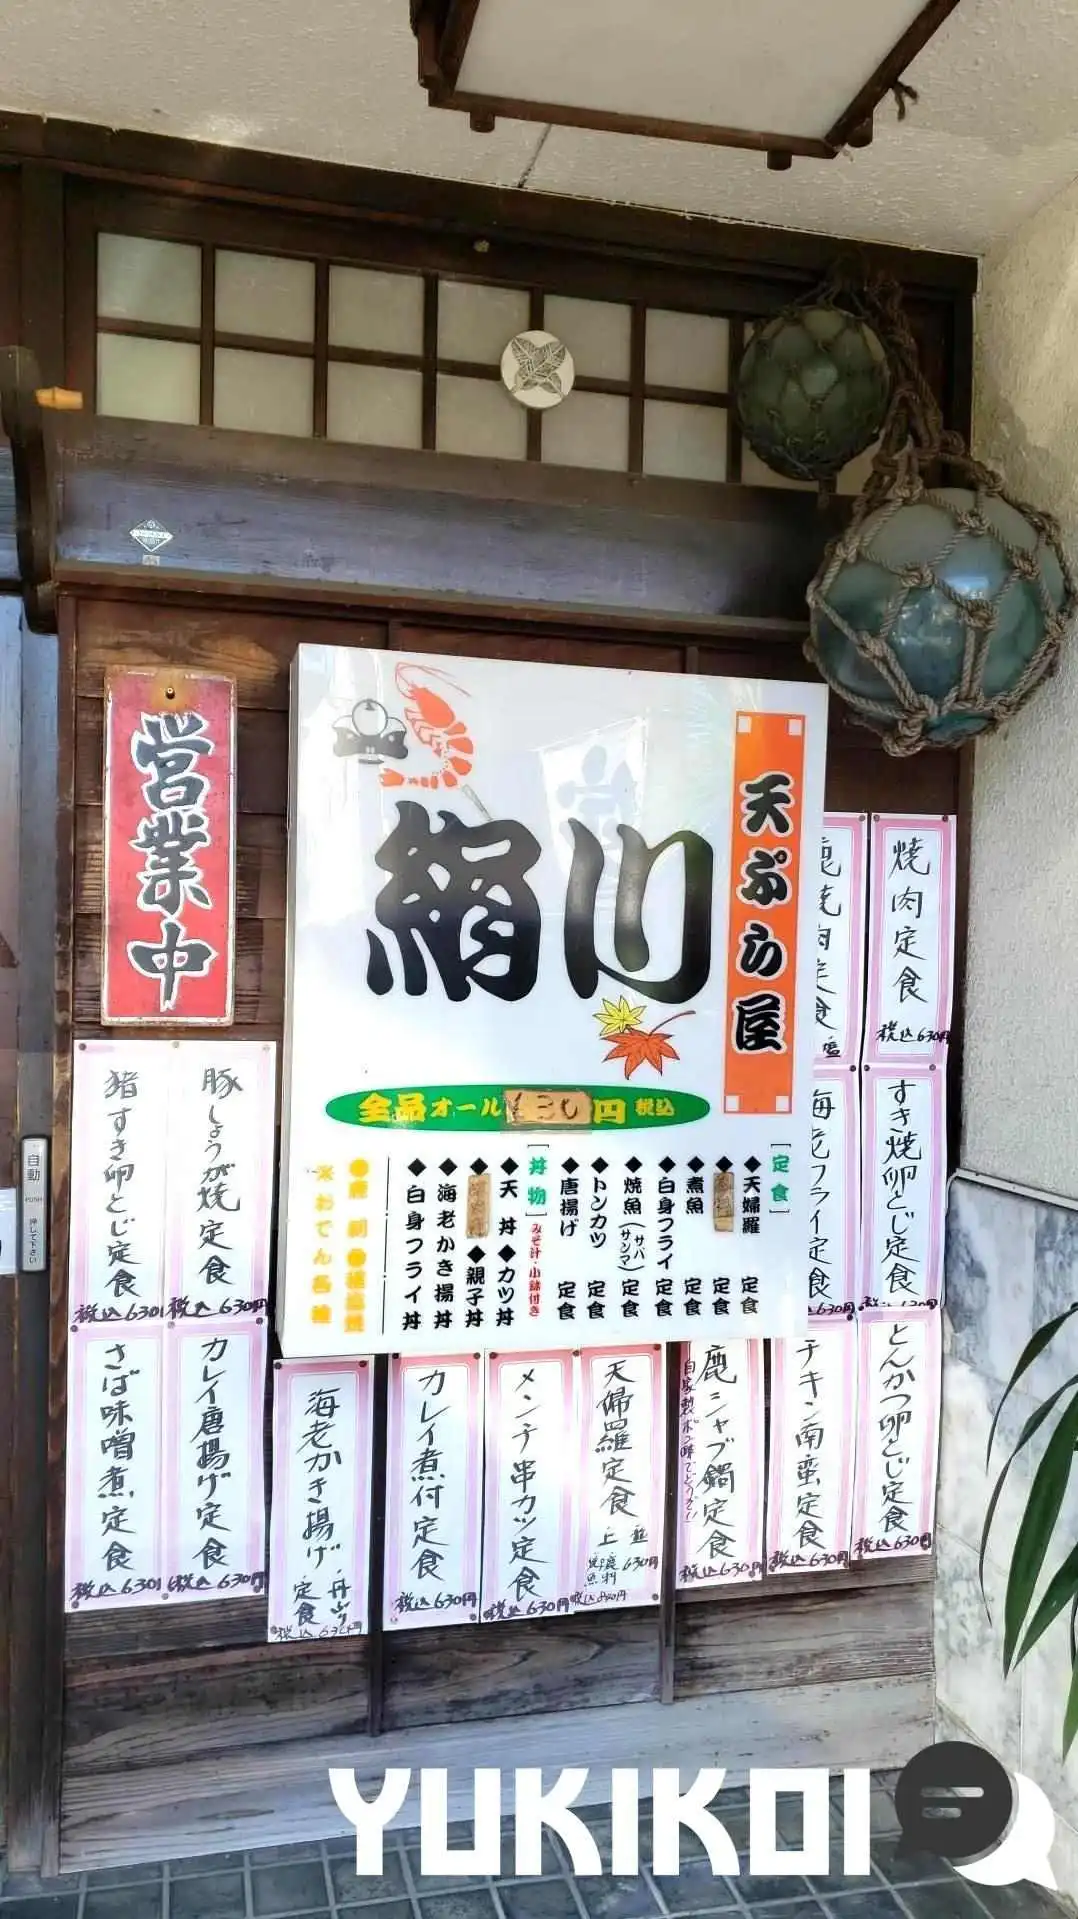 営業中
天ぷら屋
網川
全品オール630円税込
[定食]
◆天婦羅 定食
定食
◆煮魚 定食
◆白身フライ 定食
◆焼魚(サバ サンマ) 定食
◆トンカツ 定食
◆唐揚げ 定食
[丼物]みそ汁・小鉢付き
◆天丼◆カツ丼
◆親子丼
◆海老かき揚丼
◆白身フライ丼
※おでん各種
焼肉定食
税込630円
すき焼卵とじ定食
税込630円
海老フライ定食
税込630円
とんかつ卵とじ定食
税込630円
チキン南蛮定食
税込630円
鹿シャブ鍋定食
税込630円
天婦羅定食
上 並
630円
メンチ串カツ定食
税込630円
カレイ煮付定食
税込630円
海老かき揚げ
定食
税込
豚しょうが焼定食
税込630円
猪すき卵とじ定食
税込630
カレイ唐揚げ定食
税込630円
さば味噌煮定食
税込630
自動
PUSH
押して下さい
YUKIKOI